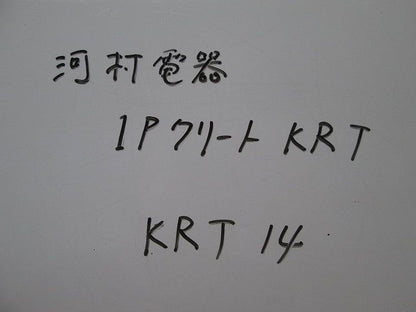 河村電器
1Pクリート KRT
KRT 14